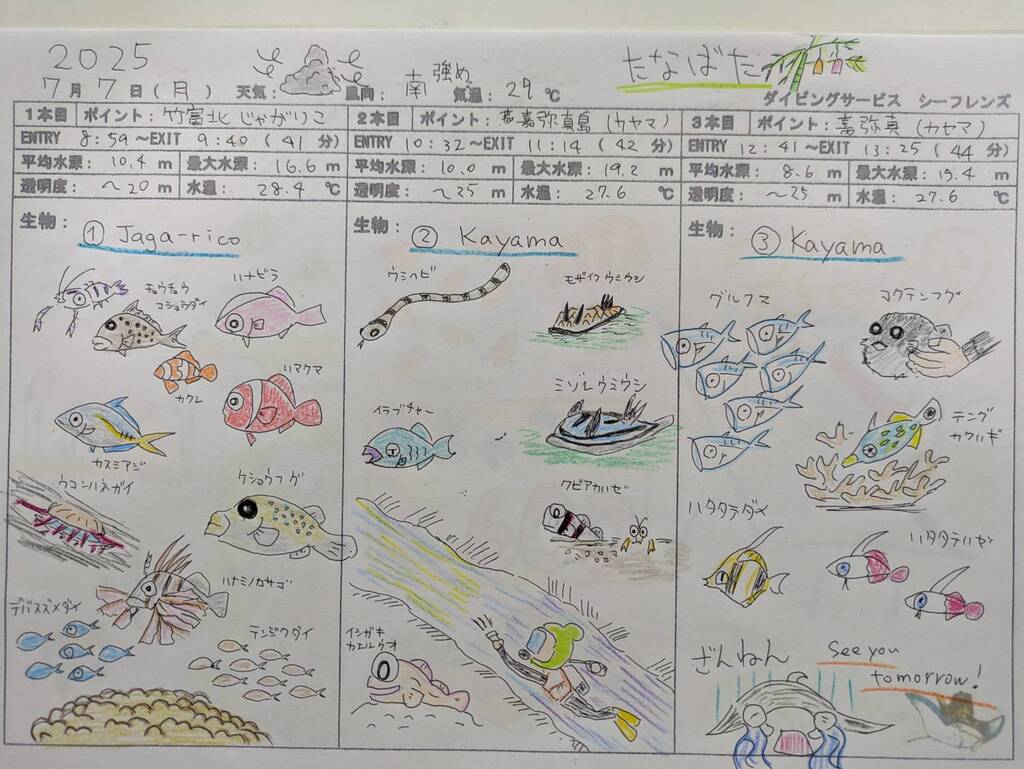 2025
たなばた
7月 7日(月) 天気: 風向: 南 強め 気温: 29 ℃
ダイビングサービス シーフレンズ
1本目 ポイント: 竹富北 じゃがりこ
ENTRY 8:59 ~EXIT 9:40 ( 41 分)
平均水深: 10.4 m 最大水深: 16.6 m
透明度: ~20 m 水温: 28.4 ℃
2本目 ポイント: 嘉弥真島 (カヤマ)
ENTRY 10:32 ~EXIT 11:14 ( 42 分)
平均水深: 10.0 m 最大水深: 19.2 m
透明度: ~25 m 水温: 27.6 ℃
3本目 ポイント: 嘉弥真 (カヤマ)
ENTRY 12:41 ~EXIT 13:25 ( 44 分)
平均水深: 8.6 m 最大水深: 19.4 m
透明度: ~25 m 水温: 27.6 ℃
生物:
① Jaga-rico
チョウチョウ
コショウダイ
ハナビラ
カクレ
ハマクマ
カスミアジ
ウコンハネガイ
ケショウフグ
ハナミノカサゴ
デバスズメダイ
テンジクダイ
生物:
② Kayama
ウミヘビ
モザイクウミウシ
イラブチャー
ミゾレウミウシ
クビアカハゼ
イシガキ
カエルウオ
生物:
③ Kayama
グルクマ
コクテンフグ
テング
カワハギ
ハタタテダイ
ハタタテハゼ
ざんねん
See you
tomorrow!